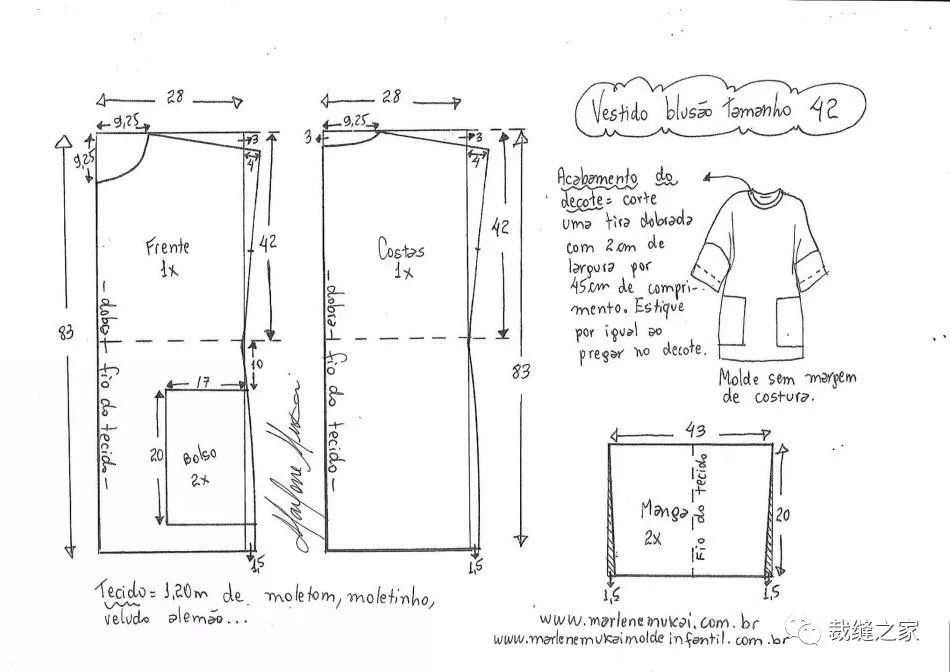 Vestido blusão tamanho 42
28
9,25
9,25
3
4
42
83
Frente
1x
dobra
fio do tecido
10
17
20
Bolso
2x
1,5
Marlene Mukai
28
9,25
3
3
4
42
83
Costas
1x
dobra
fio do tecido
1,5
Acabamento do
decote= corte
uma tira dobrada
com 2cm de
largura por
45cm de compri-
mento. Estique
por igual ao
pregar no decote.
Molde sem margem
de costura.
43
Manga
2x
Fio do tecido
20
1,5
1,5
Tecido= 1,20m de moletom, moletinho,
veludo alemão...
www.marlenemukai.com.br
www.marlenemukaimoldeinfantil.com.br
裁缝之家